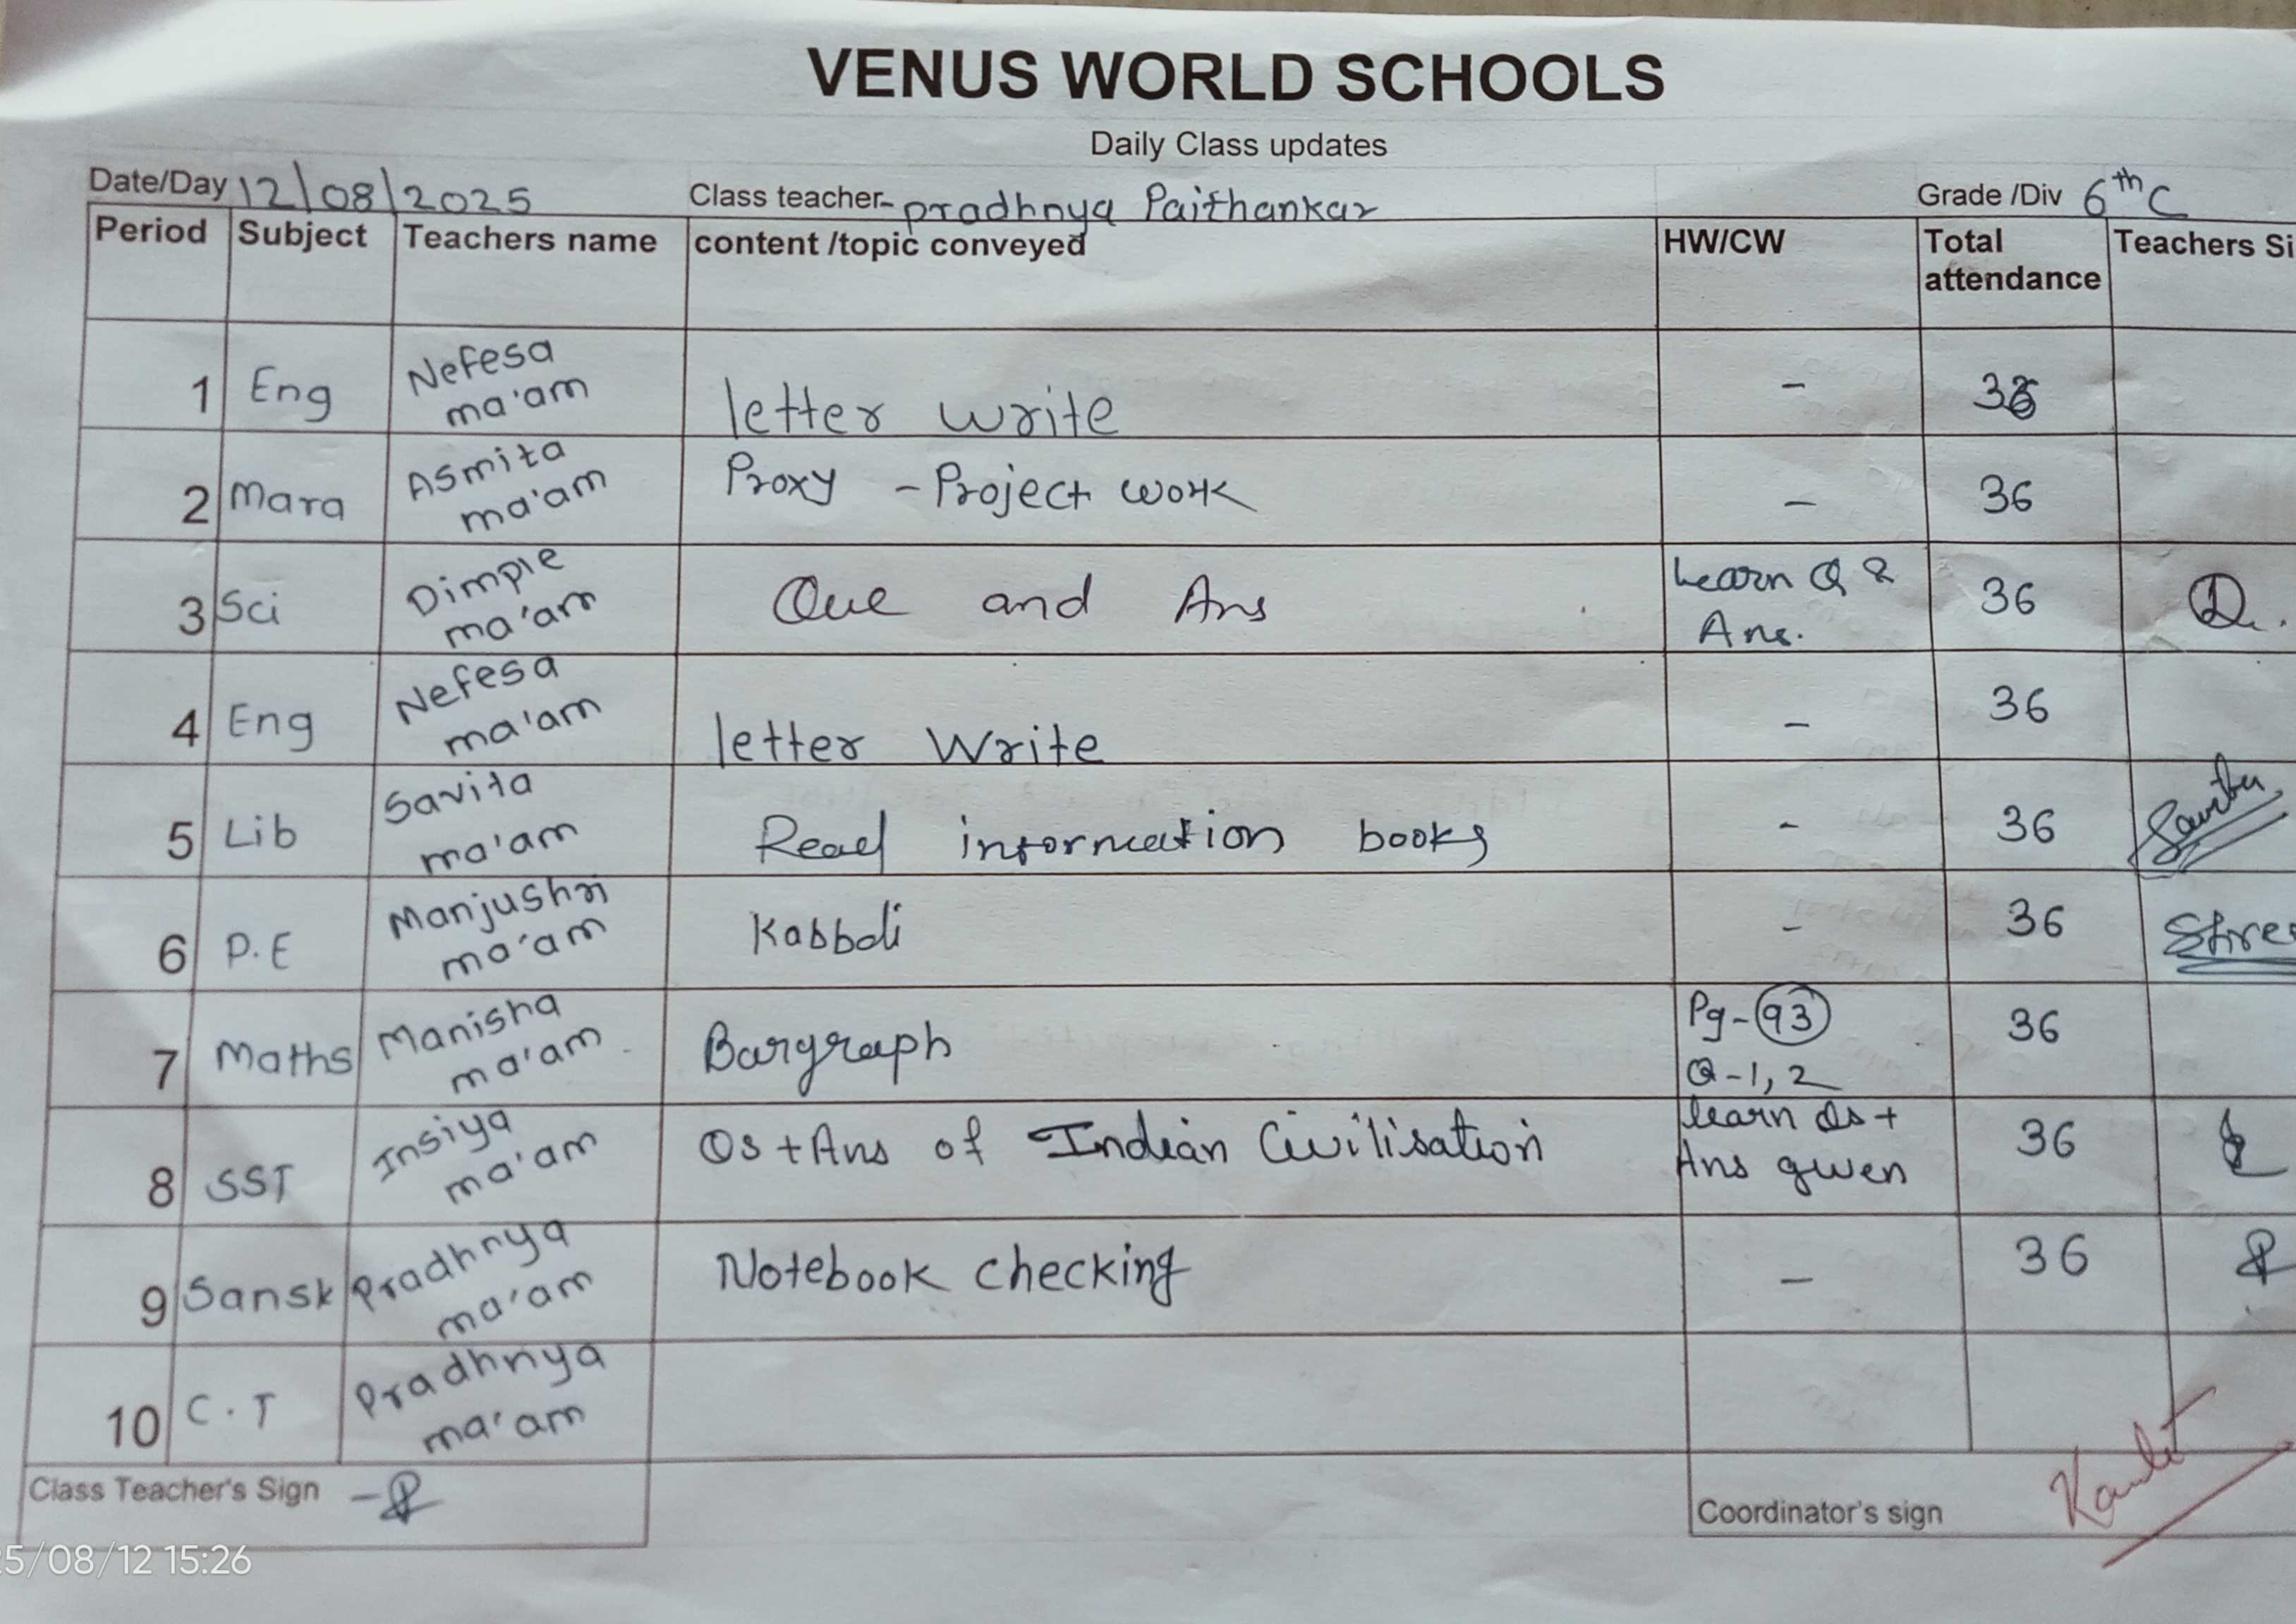 VENUS WORLD SCHOOLS
Daily Class updates
Date/Day 12/08/2025 Class teacher- pradhnya Paithankar Grade /Div 6th C
Period Subject Teachers name content /topic conveyed HW/CW Total attendance Teachers Si
1 Eng Nefesa ma'am letter write - 36
2 Mara Asmita ma'am Proxy - Project work - 36
3 Sci Dimple ma'am Que and Ans Learn Q & Ans. 36
4 Eng Nefesa ma'am letter Write - 36
5 Lib Savita ma'am Read information books - 36 Savita
6 P.E Manjushri ma'am Kabbdi - 36
7 Maths Manisha ma'am Bargraph Pg-93 Q-1, 2 36
8 SST Insiya ma'am Qs + Ans of Indian Civilisation learn Qs + Ans given 36
9 Sansk Pradhnya ma'am Notebook checking - 36
10 C.T Pradhnya ma'am
Class Teacher's Sign -
Coordinator's sign
5/08/12 15:26